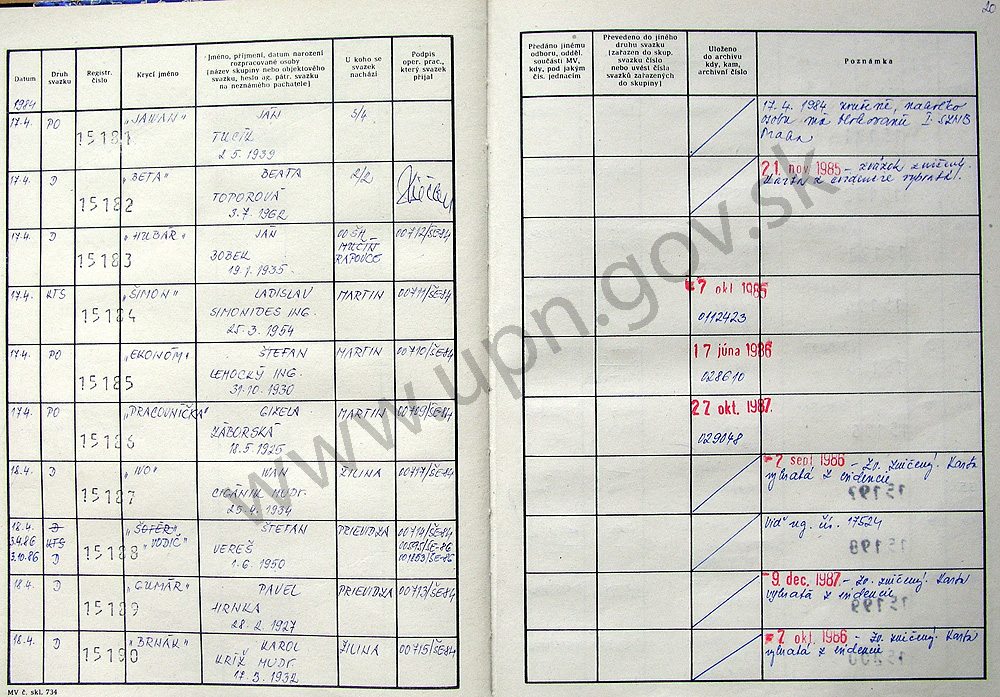 20
Datum
Druh svazku
Registr. číslo
Krycí jméno
Jméno, příjmení, datum narození
rozpracované osoby
[název skupiny nebo objektového
svazku, heslo ag. pátr. svazku
na neznámého pachatele]
U koho se
svazek
nachází
Podpis
oper. prac.,
který svazek
přijal
Předáno jinému
odboru, odděl.
součásti MV,
kdy, pod jakým
čís. jednacím
Převedeno do jiného
druhu svazku
[zařazen do skup.
svazku číslo
nebo uvést čísla
svazků zařazených
do skupiny]
Uloženo
do archivu
kdy, kam,
archivní číslo
Poznámka
1984
17.4. PO 15181 "JAWAN" JÁN S/4
TUCÍK
2 5. 1939
17. 4. 1984 zrušené, nakoľko
osobu má blokovanú I. SZNB
Praha
17.4. D 15182 "BETA" BEATA 2/2
TOPOROVÁ
3.7. 1962
21. nov 1985 - zväzok zničený.
Karta z evidencie vybratá.
17.4. D 15183 "HUBÁR" JÁN OO ŠH 00712/ŠE-84
BOBEK MUČÍN
19.1. 1935 RAPOVCE
17.4. KTS 15184 "ŠIMON" LADISLAV MARTIN 00711/ŠE-84
SIMONIDES ING.
25. 3. 1954
7 okt 1985
0112423
17.4. PO 15185 "EKONÓM" ŠTEFAN MARTIN 00710/ŠE-84
LEMOCKÝ ING.
31. 10. 1930
17 júna 1986
028610
17.4. PO 15186 "PRACOVNÍČKA" GIZELA MARTIN 00709/ŠE-84
ZÁBORSKÁ
18. 5. 1925
27 okt. 1987.
029048
18.4. D 15187 "IVO" IVAN ŽILINA 00717/ŠE-84
CIGÁNIK MUDR.
25. 4. 1934
2 sept 1986 - Zv. zničený. Karta
vybratá z evidencie
15197
18.4. D 15188 "ŠOFÉR" ŠTEFAN PRIEVIDZA 00714/ŠE-84
3.4.86 KTS "VODIČ" VEREŠ 00595/ŠE-86
3.10.86 D 1. 6. 1950 001853/ŠE-86
Viď reg. čís. 17524
15198
18.4. D 15189 "GUMÁR" PAVEL PRIEVIDZA 00713/ŠE-84
HRNKA
28. 2. 1927
9. dec. 1987 - Zv. zničený. Karta
vybratá z evidencie
15199
18.4. D 15190 "BRŇÁK" KAROL ŽILINA 00715/ŠE-84
KRÍŽ MUDR.
17. 3. 1932
7 okt. 1986 - Zv. zničený. Karta
vybratá z evidencie
15200
MV č. skl. 734
www.upn.gov.sk